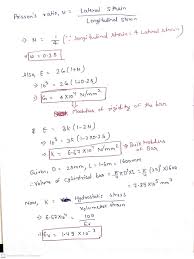 Poisson's ratio, μ = Lateral Strain / Longitudinal strain
⇒ μ = 1/4 (∵ longitudinal strain = 4 Lateral strain)
⇒ μ = 0.25
Also, E = 2G(1+μ)
⇒ 10⁵ = 2G(1+0.25)
⇒ G = 4×10⁴ N/mm²
Modulus of rigidity of the bar
& E = 3K(1-2μ)
⇒ K = 6.67×10⁴ N/mm² → Bulk Modulus of Bar.
Given, D = 25mm, L = 1.6m = 1600mm
∴ Volume of cylindrical bar =
Now, K = Hydrostatic stress / Volumetric strain
⇒ 6.67×10⁴ = 100 / Ev